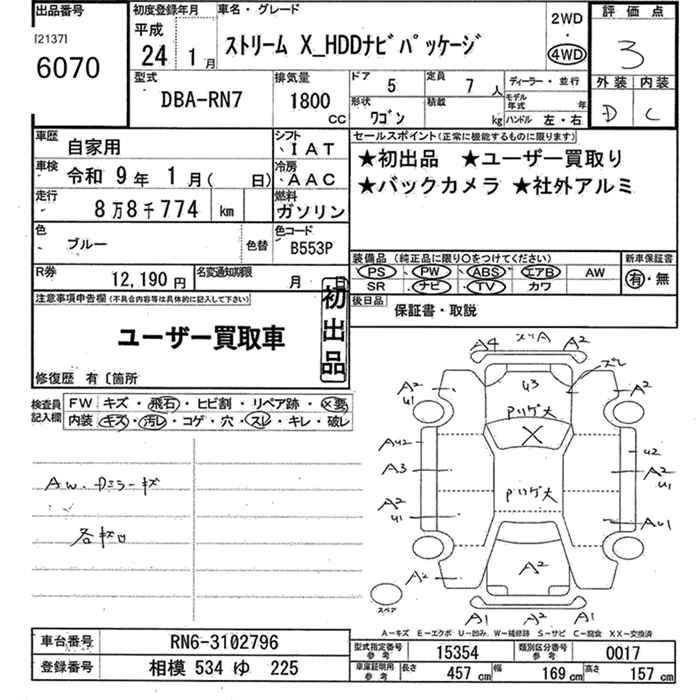 出品番号
[2137]
6070
初度登録年月
平成
24 1 月
車名・グレード
ストリーム X_HDDナビパッケージ
2WD
・
4WD
評価点
3
外装 内装
D C
型式
DBA-RN7
排気量
1800
CC
ドア 5
定員 7 人
形状 ワゴン
積載 kg
ディーラー・並行
モデル年式 年
ハンドル 左・右
車歴 自家用
シフト IAT
車検 令和 9 年 1 月( 日)
冷房 AAC
走行 8万8千774 km
燃料 ガソリン
色 ブルー 色替
色コード B553P
R券 12,190 円
名変通知期限 月 日
セールスポイント(正常に機能するものに限ります)
★初出品 ★ユーザー買取り
★バックカメラ ★社外アルミ
装備品 (純正品に限り○をつけてください)
PS ・ PW ・ ABS ・ エアB AW
SR ナビ ・ TV カワ
新車保証書
有・無
後日品
保証書・取説
注意事項申告欄(不具合内容等は具体的に記入して下さい)
ユーザー買取車
初出品
修復歴 有〔箇所
検査員記入欄
FW キズ・飛石・ヒビ割・リペア跡・×要
内装 キズ・汚レ・コゲ・穴・スレ・キレ・破レ
AW.Dミラーキズ
A4 A A2
ズレ
A2 U1
U3
A2
Pリゲ大
X
AU2
U2
A3
A2 U1
Pリゲ大
A2 U1
AU1
A2
A2
A2
A1 A2 A1
スペア
A-キズ E-エクボ U-凹み W-補修跡 S-サビ C-腐食 XX-交換済
車台番号 RN6-3102796
登録番号 相模 534 ゆ 225
型式指定番号 参考 15354
類別区分番号 参考 0017
車庫証明用 参考 長さ 457 cm 幅 169 cm 高さ 157 cm